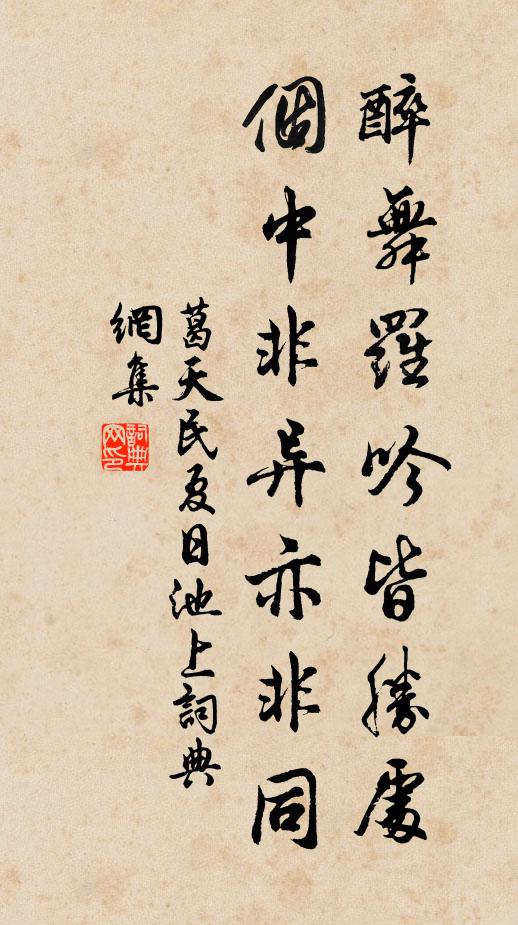 醉舞罷吟皆勝處
個中非异亦非同
葛天民夏日池上詞典
網集
詞典網印